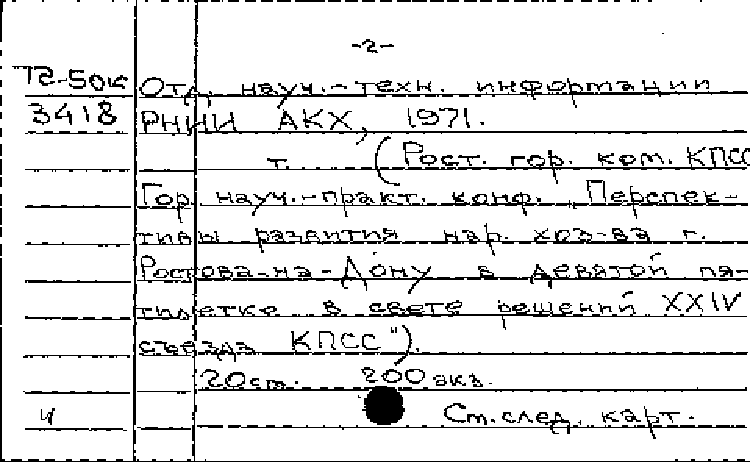 -2-
72-50к Отд. науч.-техн. информации
3418 РНИИ АКХ, 1971.
т. (Рост. гор. ком. КПСС
Гор. науч.-практ. конф. „Перспек-
тивы развития нар. хоз-ва г.
Ростова-на-Дону в девятой пя-
тилетке в свете решений XXIV
съезда КПСС").
20см. 200 экз.
См. след. карт.